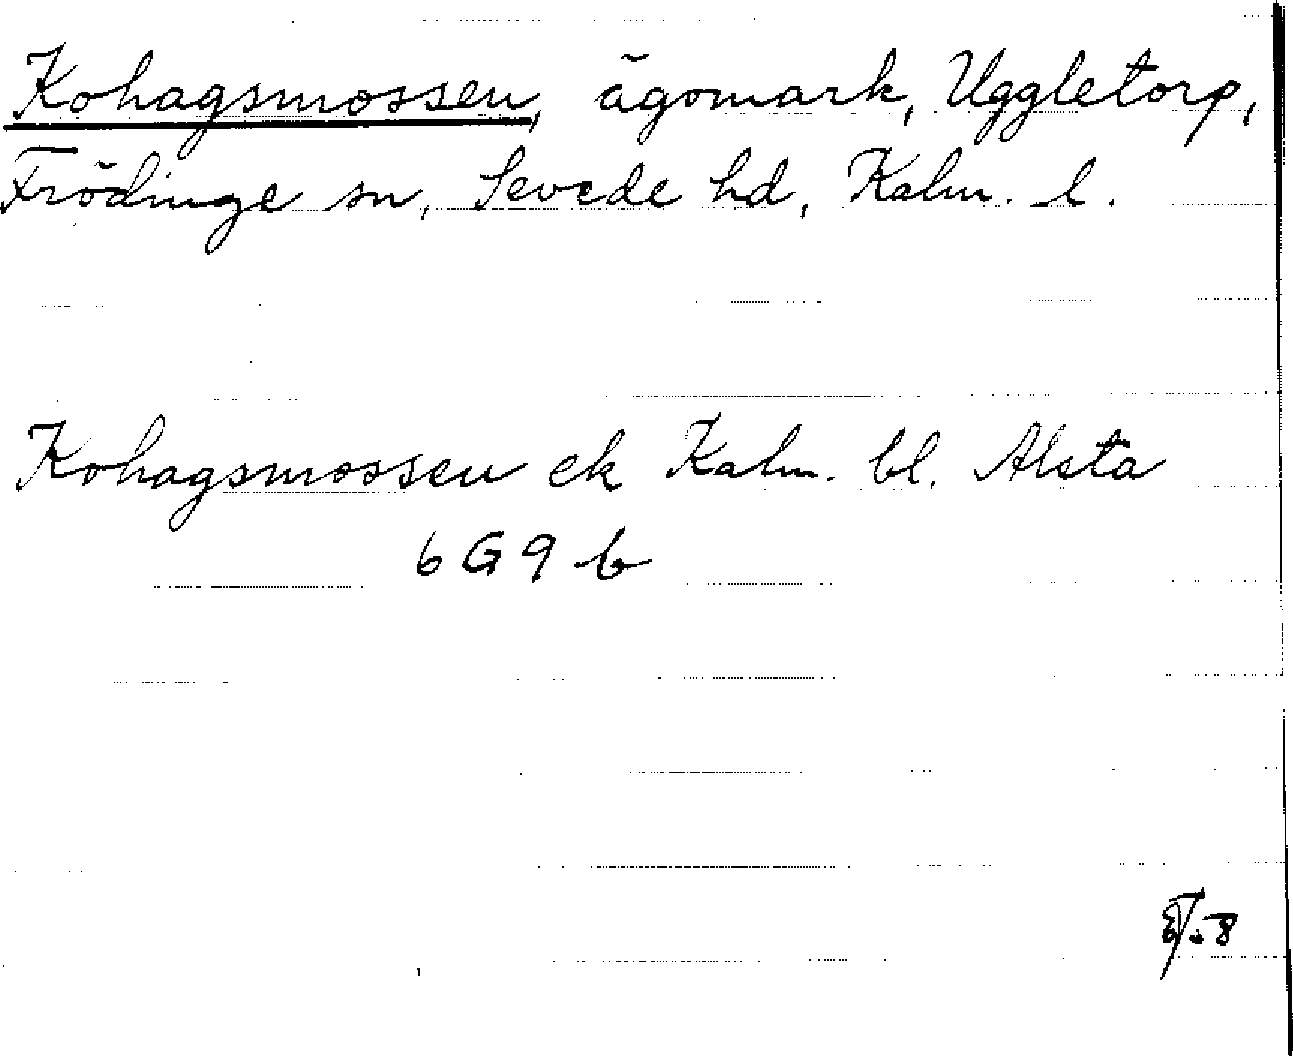 Kohagsmossen, ägomark, Uggletorp,
Frödinge sn, Sevede hd, Kalm. l.
Kohagsmossen ek Kalm. bl. Alsta
6G9b